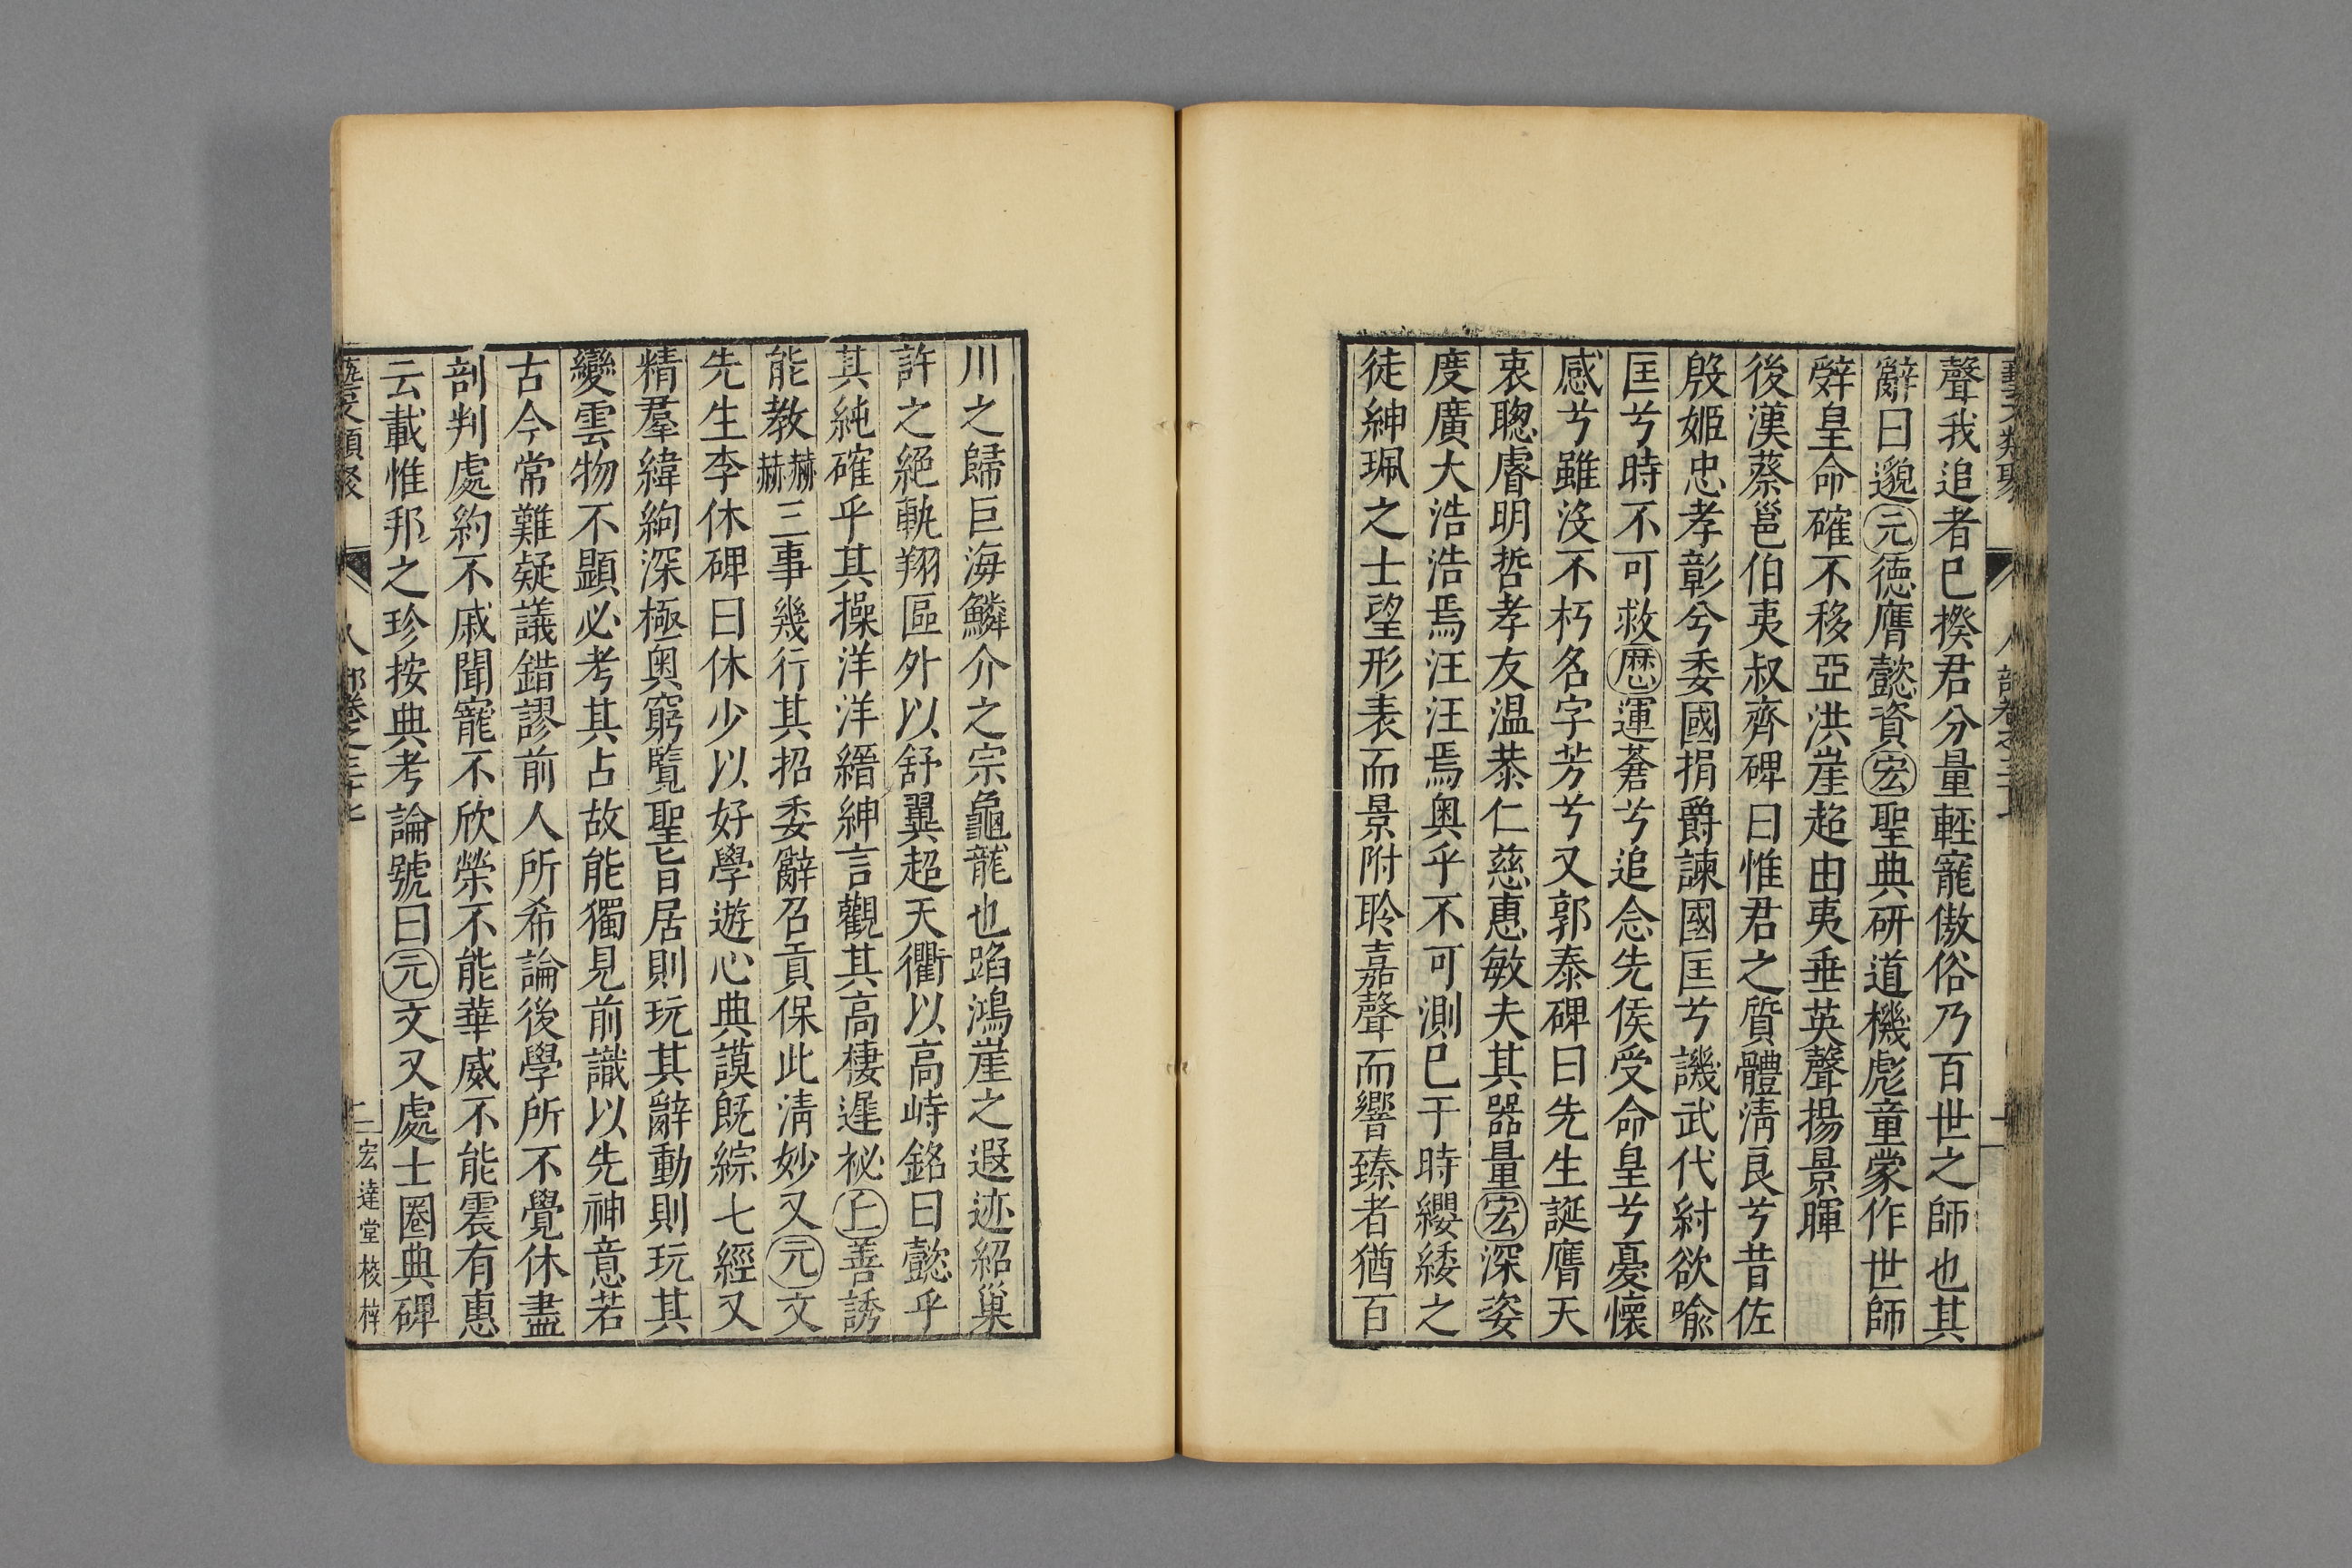 藝文類聚 人部卷之三十七
聲我追者已揆君分量輕寵傲俗乃百世之師也其
辭曰邈元德膺懿資宏聖典研道機彪童蒙作世師
辤皇命確不移亞洪崖超由夷垂英聲揚景暉
後漢蔡邕伯夷叔齊碑曰惟君之質體清良兮昔佐
殷姬忠孝彰兮委國捐爵諫國匡兮譏武代紂欲喻
匡兮時不可救歴運蒼兮追念先侯受命皇兮憂懷
感兮雖沒不朽名字芳兮又郭泰碑曰先生誕膺天
衷聰睿明哲孝友温恭仁慈惠敏夫其器量宏深姿
度廣大浩浩焉汪汪焉奥乎不可測已于時纓緌之
徒紳珮之士望形表而景附聆嘉聲而響臻者猶百
川之歸巨海鱗介之宗龜龍也蹈鴻崖之遐迹紹巢
許之絕軌翔區外以舒翼超天衢以高峙銘曰懿乎
其純確乎其操洋洋縉紳言觀其高棲遲祕丘善誘
能教赫赫三事幾行其招委辭召貢保此清妙又元文
先生李休碑曰休少以好學遊心典謨既綜七經又
精羣緯絢深極奥窮覽聖旨居則玩其辭動則玩其
變雲物不顯必考其占故能獨見前識以先神意若
古今常難疑議錯謬前人所希論後學所不覺休盡
剖判處約不戚聞寵不欣榮不能華威不能震有惠
云載惟邦之珍按典考論號曰元文又處士圈典碑
藝文類聚 人部卷之三十七 二 宏達堂校梓